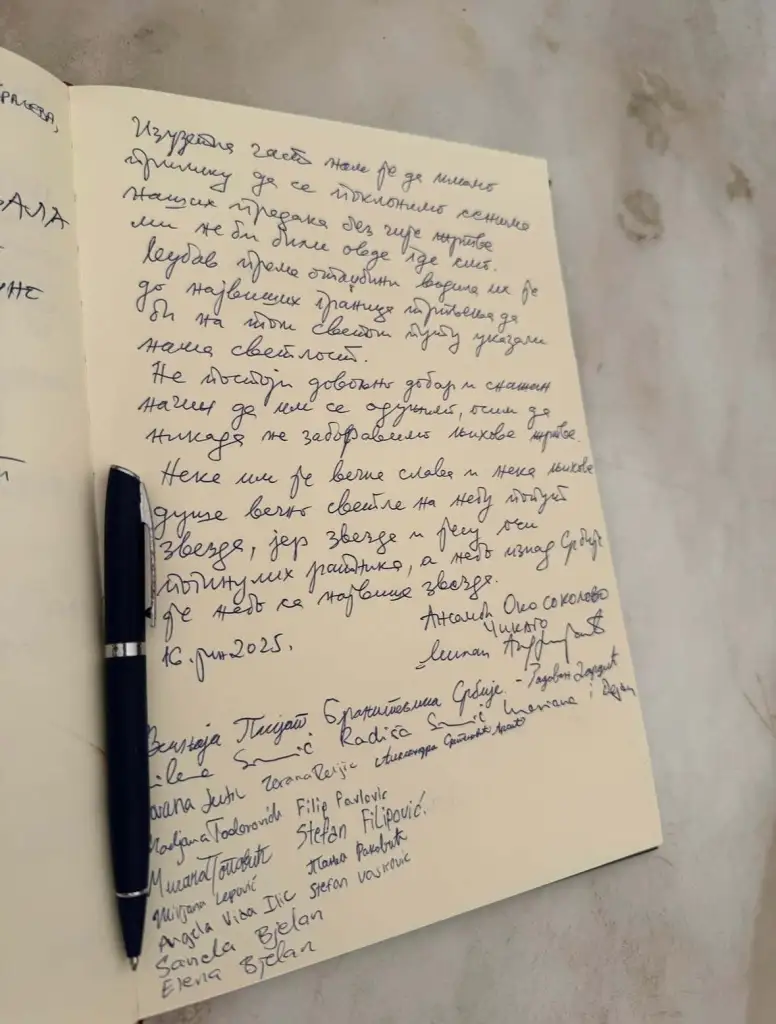 РАЉЕВА,
АЛА
Изузетна част нам је да имамо
прилику да се поклонимо сенима
наших предака без чије жртве
ми не би били овде где смо.
Љубав према отаџбини водила их је
до највиших граница трпљења да
би на том светом путу указали
нама светлост.
Не постоји довољно добар и снажан
начин да им се одужимо, осим да
никада не заборавимо њихове жртве.
Нека им је вечна слава и нека њихове
душе вечно светле на небу попут
звезда, јер звезде и јесу очи
погинулих ратника, а небо изнад Србије
је небо са највише звезда.
Ансамбл Око соколово
Чикаго
16. јун 2025.
Милан
Весиљаја Пијат Бранитељима Србије - Радован
Radiša Marijana i Dejan
Zorana Александра
Todorovich Filip Pavlovic
Милана Поповић Stefan Filipović
Mirjana Lepović Тања Раковић
Angela Vida Ilic Stefan Vasković
Sanela Bjelan
Elena Bjelan